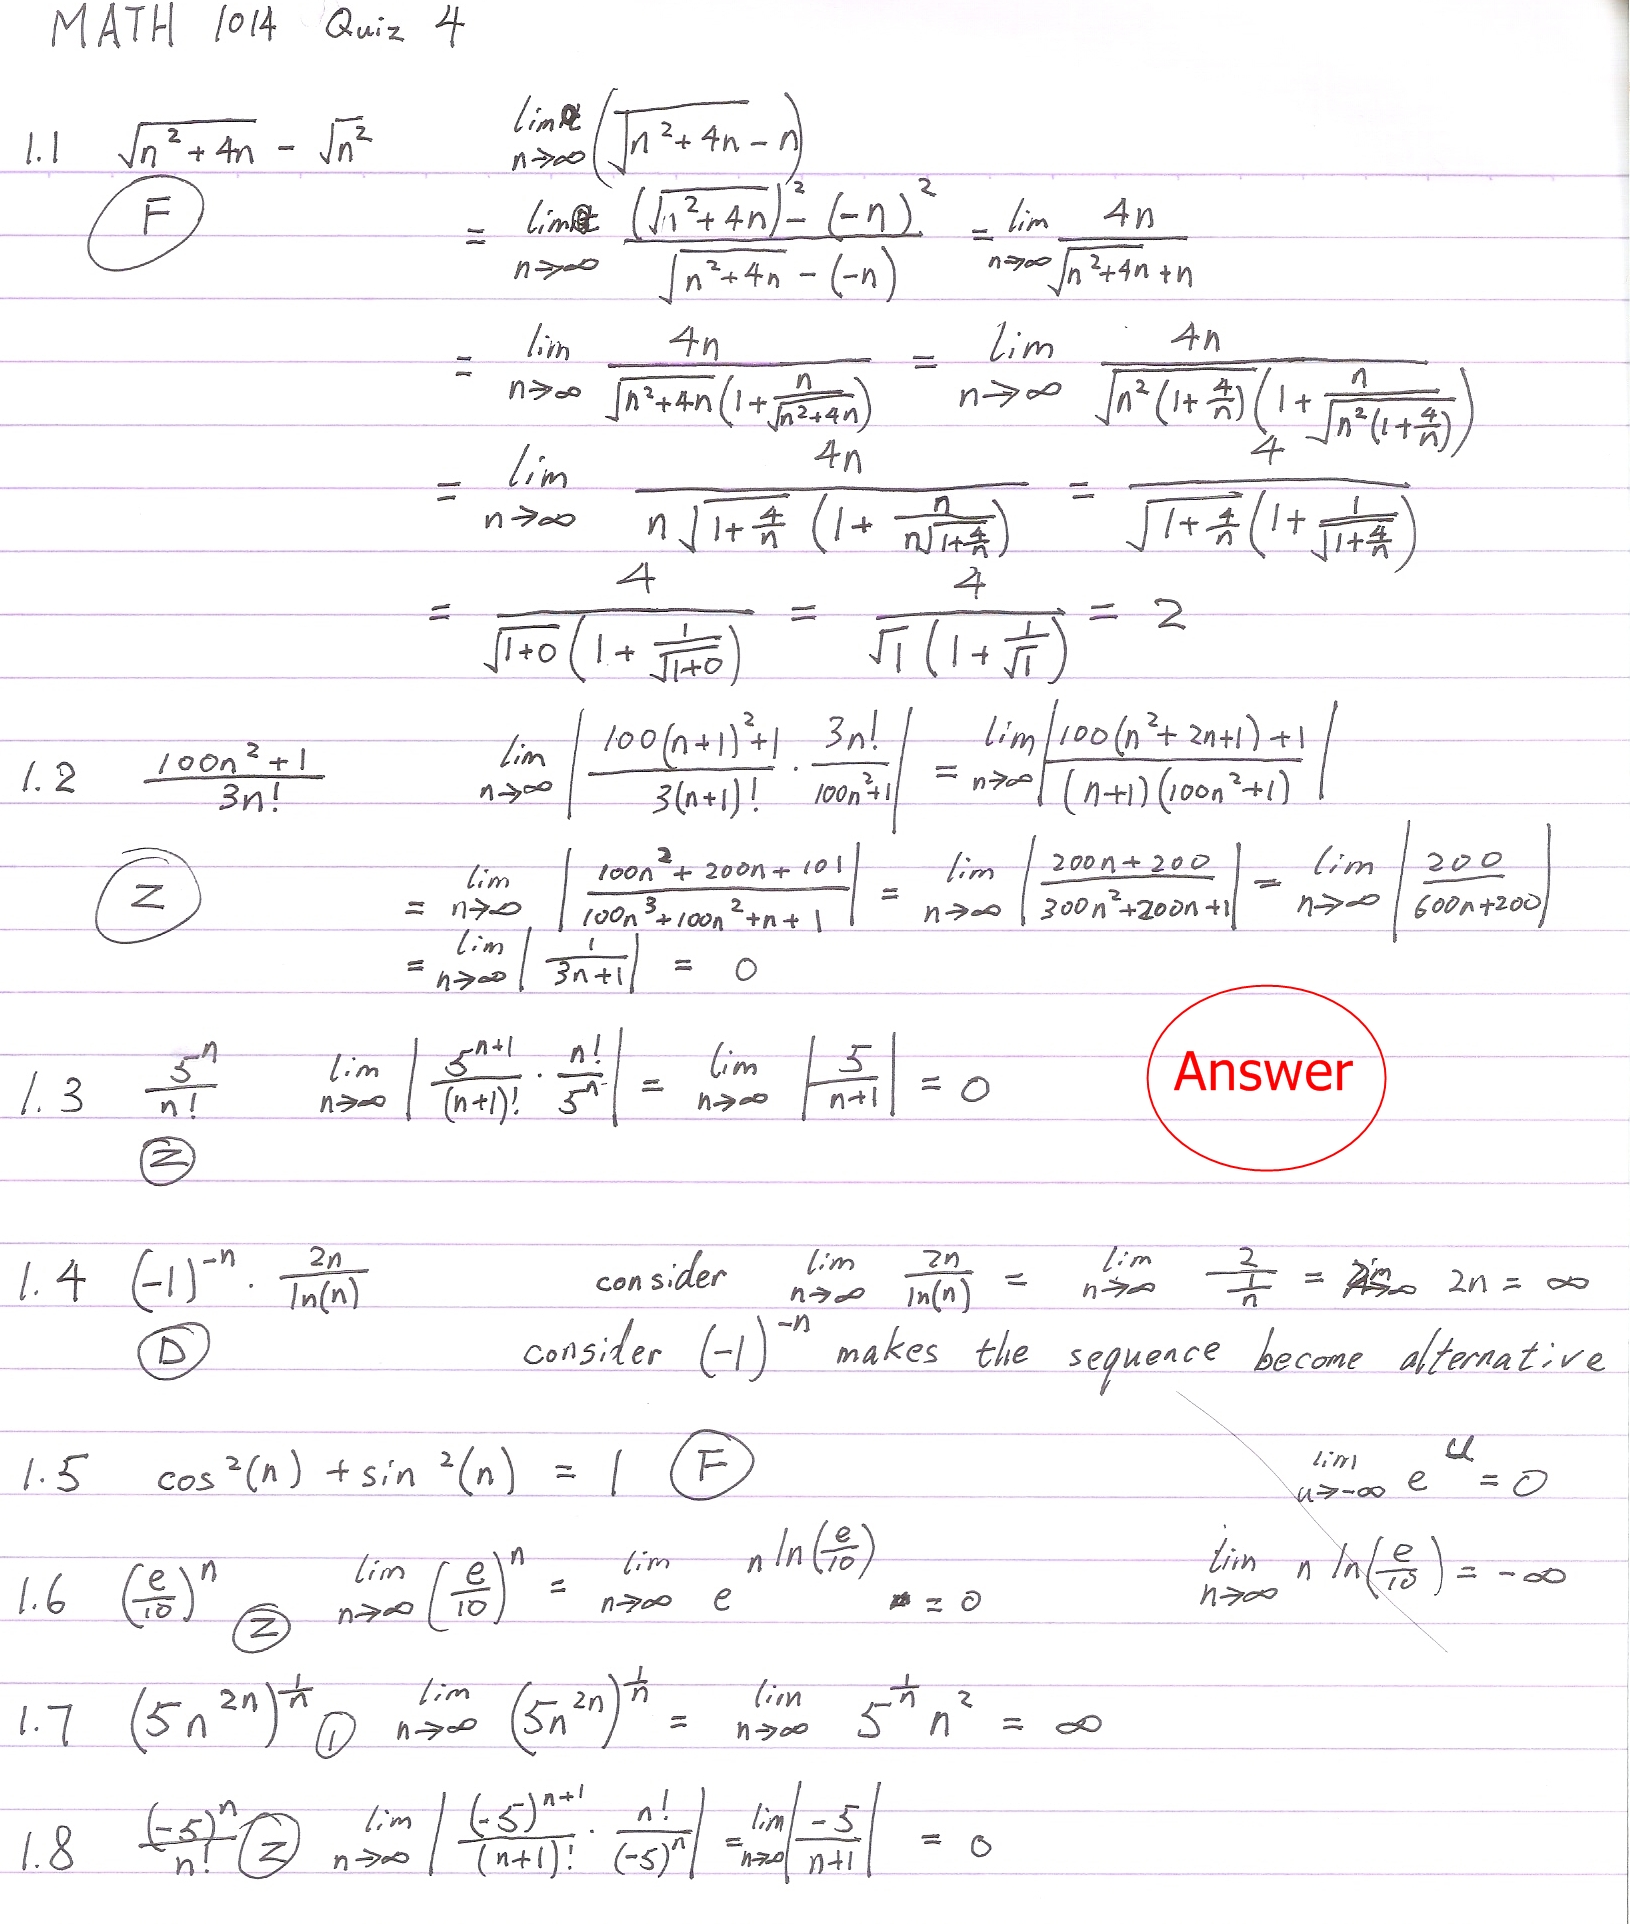 MATH 1014 Quiz 4
1.1 √(n²+4n) - √n² lim n→∞ (√(n²+4n) - n)
F = lim n→∞ ((√(n²+4n))² - (-n)²)/(√(n²+4n) - (-n)) = lim n→∞ 4n/(√(n²+4n) + n)
= lim n→∞ 4n/(√(n²+4n)(1+n/√(n²+4n))) = lim n→∞ 4n/(√(n²(1+4/n))(1+n/√(n²(1+4/n))))
= lim n→∞ 4n/(n√(1+4/n)(1+n/(n√(1+4/n)))) = 4/(√(1+4/n)(1+1/√(1+4/n)))
= 4/(√(1+0)(1+1/√(1+0))) = 4/(√1(1+1/√1)) = 2
1.2 (100n²+1)/3n! lim n→∞ |(100(n+1)²+1)/(3(n+1)!) · 3n!/(100n²+1)| = lim n→∞ |(100(n²+2n+1)+1)/((n+1)(100n²+1))|
Z = lim n→∞ |(100n²+200n+101)/(100n³+100n²+n+1)| = lim n→∞ |(200n+200)/(300n²+200n+1)| = lim n→∞ |200/(600n+200)|
= lim n→∞ |1/(3n+1)| = 0
1.3 5ⁿ/n! lim n→∞ |5ⁿ⁺¹/(n+1)! · n!/5ⁿ| = lim n→∞ |5/(n+1)| = 0
Z
Answer
1.4 (-1)⁻ⁿ · 2n/ln(n) consider lim n→∞ 2n/ln(n) = lim n→∞ 2/(1/n) = lim n→∞ 2n = ∞
D consider (-1)⁻ⁿ makes the sequence become alternative
1.5 cos²(n) + sin²(n) = 1 F lim u→-∞ e^u = 0
1.6 (e/10)ⁿ Z lim n→∞ (e/10)ⁿ = lim n→∞ e^(n ln(e/10)) = 0 lim n→∞ n ln(e/10) = -∞
1.7 (5n²ⁿ)^(1/n) I lim n→∞ (5n²ⁿ)^(1/n) = lim n→∞ 5^(1/n) n² = ∞
1.8 (-5)ⁿ/n! Z lim n→∞ |(-5)ⁿ⁺¹/(n+1)! · n!/(-5)ⁿ| = lim n→∞ |-5/(n+1)| = 0